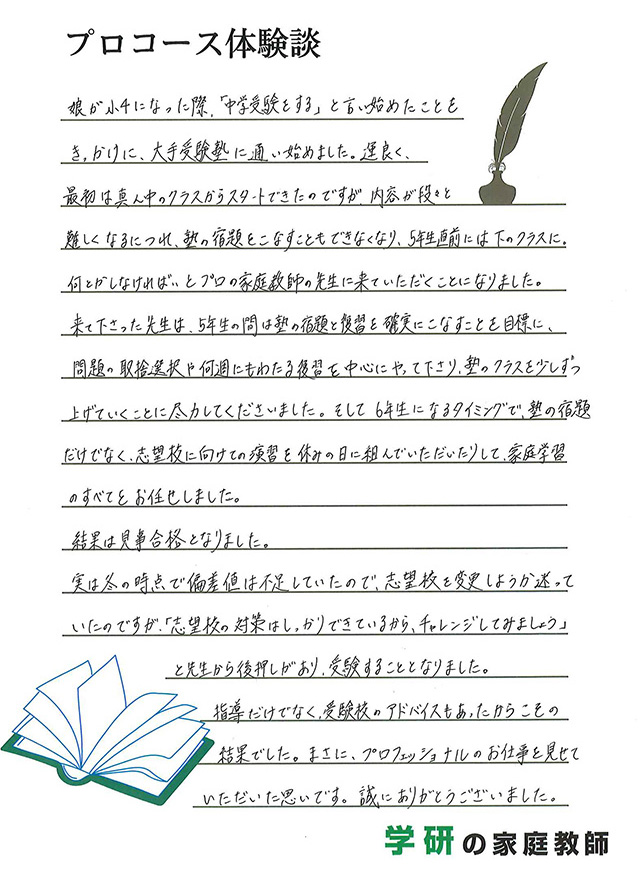 プロコース体験談
娘が小4になった際、「中学受験をする」と言い始めたことを
きっかけに、大手受験塾に通い始めました。運良く、
最初は真ん中のクラスからスタートできたのですが、内容が段々と
難しくなるにつれ、塾の宿題をこなすこともできなくなり、5年生直前には下のクラスに。
何とかしなければ…とプロの家庭教師の先生に来ていただくことになりました。
来て下さった先生は、5年生の間は塾の宿題と復習を確実にこなすことを目標に、
問題の取捨選択や何週にもわたる復習を中心にやって下さり、塾のクラスを少しずつ
上げていくことに尽力してくださいました。そして6年生になるタイミングで、塾の宿題
だけでなく、志望校に向けての演習を休みの日に組んでいただいたりして、家庭学習
のすべてをお任せしました。
結果は見事合格となりました。
実は冬の時点で偏差値は不足していたので、志望校を変更しようか迷って
いたのですが、「志望校の対策はしっかりできているから、チャレンジしてみましょう」
と先生から後押しがあり、受験することとなりました。
指導だけでなく、受験校のアドバイスもあったからこその
結果でした。まさに、プロフェッショナルのお仕事を見せて
いただいた思いです。誠にありがとうございました。
学研の家庭教師